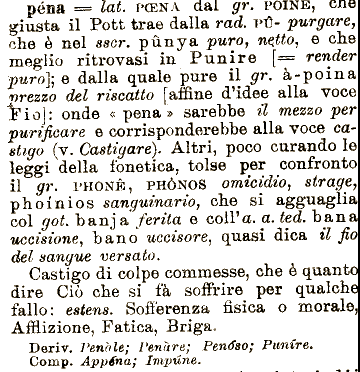 péna = lat. PŒNA dal gr. POINÊ, che
giusta il Pott trae dalla rad. PÛ- purgare,
che è nel sscr. pûnya puro, netto, e che
meglio ritrovasi in Punire [= render
puro]; e dalla quale pure il gr. à-poina
prezzo del riscatto [affine d'idee alla voce
Fio]: onde « pena » sarebbe il mezzo per
purificare e corrisponderebbe alla voce ca-
stigo (v. Castigare). Altri, poco curando le
leggi della fonetica, tolse per confronto
il gr. PHONÊ, PHÒNOS omicidio, strage,
phoínios sanguinario, che si agguaglia
col got. banja ferita e coll'a. a. ted. bana
uccisione, bano uccisore, quasi dica il fio
del sangue versato.
Castigo di colpe commesse, che è quanto
dire Ciò che si fà soffrire per qualche
fallo: estens. Sofferenza fisica o morale,
Afflizione, Fatica, Briga.
Deriv. Penàle; Penàre; Penóso; Puníre.
Comp. Appéna; Impúne.